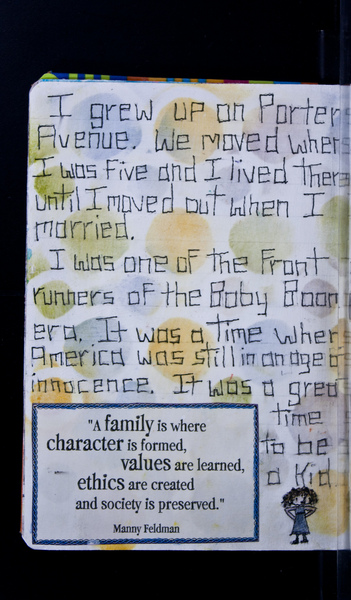 I grew up on Porter
Avenue. We moved when
I was five and I lived there
until I moved out when I
married.
I was one of the Front -
runners of the Baby Boom
era. It was a time when
America was still in an age of
innocence. It was a great
time
to be
a kid.
"A family is where
character is formed,
values are learned,
ethics are created
and society is preserved."
Manny Feldman